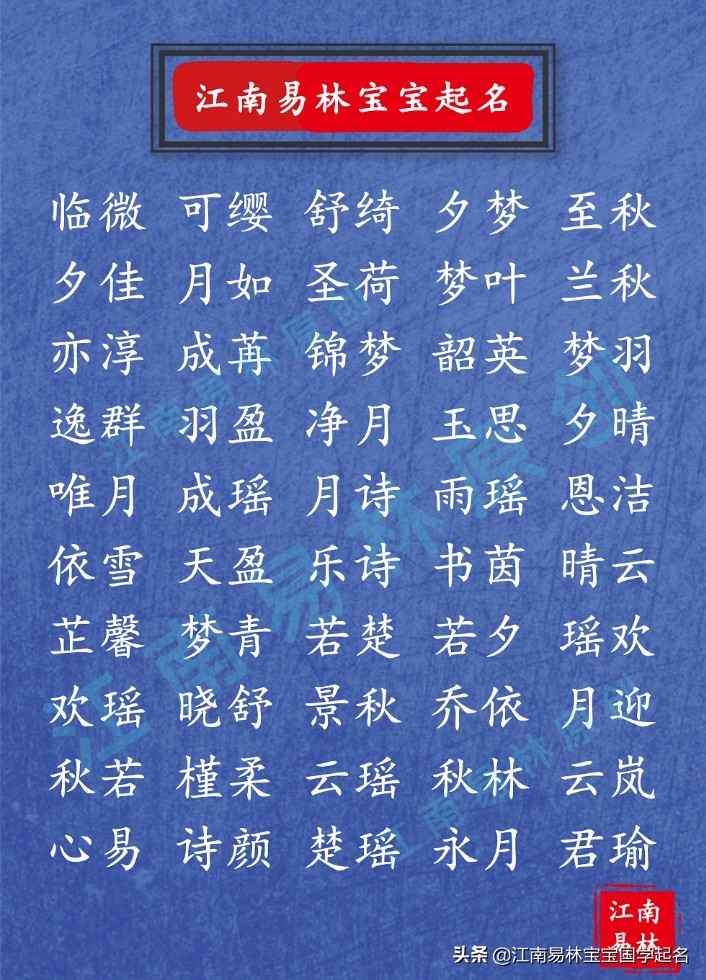 江南易林宝宝起名
临微 可缨 舒绮 夕梦 至秋
夕佳 月如 圣荷 梦叶 兰秋
亦淳 成苒 锦梦 韶英 梦羽
逸群 羽盈 净月 玉思 夕晴
唯月 成瑶 月诗 雨瑶 恩洁
依雪 天盈 乐诗 书茵 晴云
芷馨 梦青 若楚 若夕 瑶欢
欢瑶 晓舒 景秋 乔依 月迎
秋若 槿柔 云瑶 秋林 云岚
心易 诗颜 楚瑶 永月 君瑜
江南易林原创
江南易林原创
江南易林原创
江南
易林
头条 @江南易林宝宝国学起名